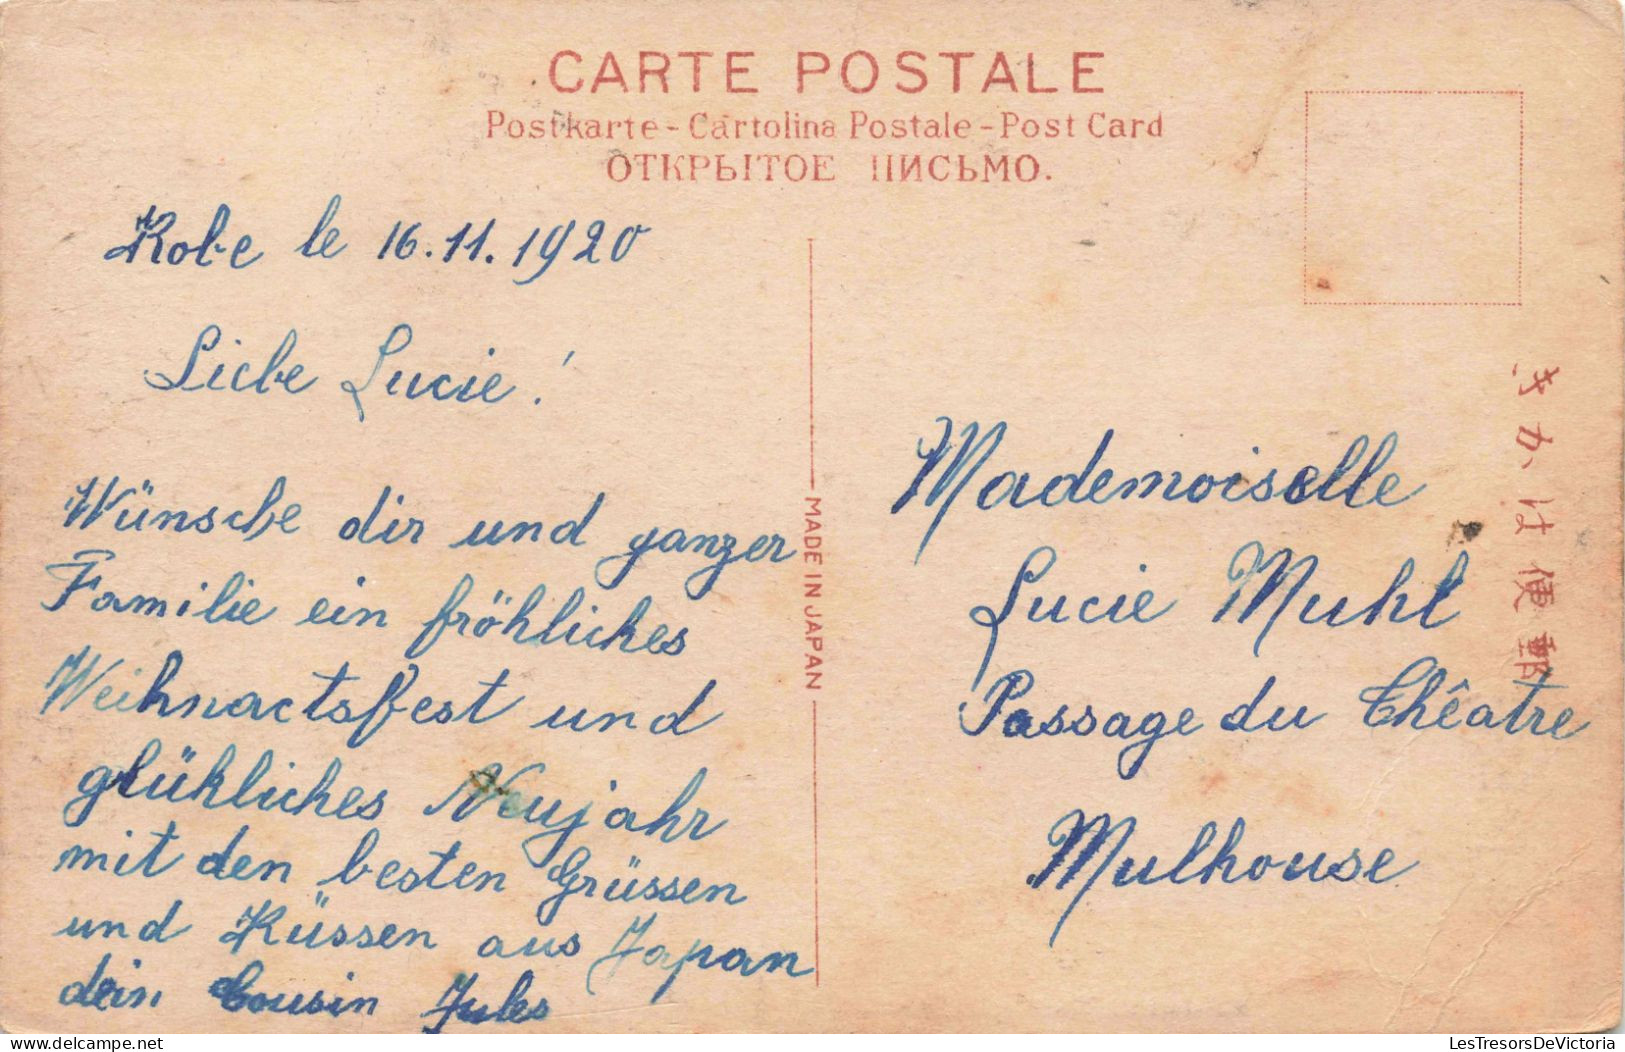 CARTE POSTALE
Postkarte - Cartolina Postale - Post Card
ОТКРЫТОЕ ПИСЬМО.
Kobe le 16.11.1920
Liebe Lucie!
Wünsche dir und ganzer
Familie ein fröhliches
Weihnactsfest und
glükliches Neujahr
mit den besten Grüssen
und Küssen aus Japan
dein Cousin Jules
MADE IN JAPAN
Mademoiselle
Lucie Muhl
Passage du Thêatre
Mulhouse
郵便はかき
delcampe.net
LesTresorsDeVictoria